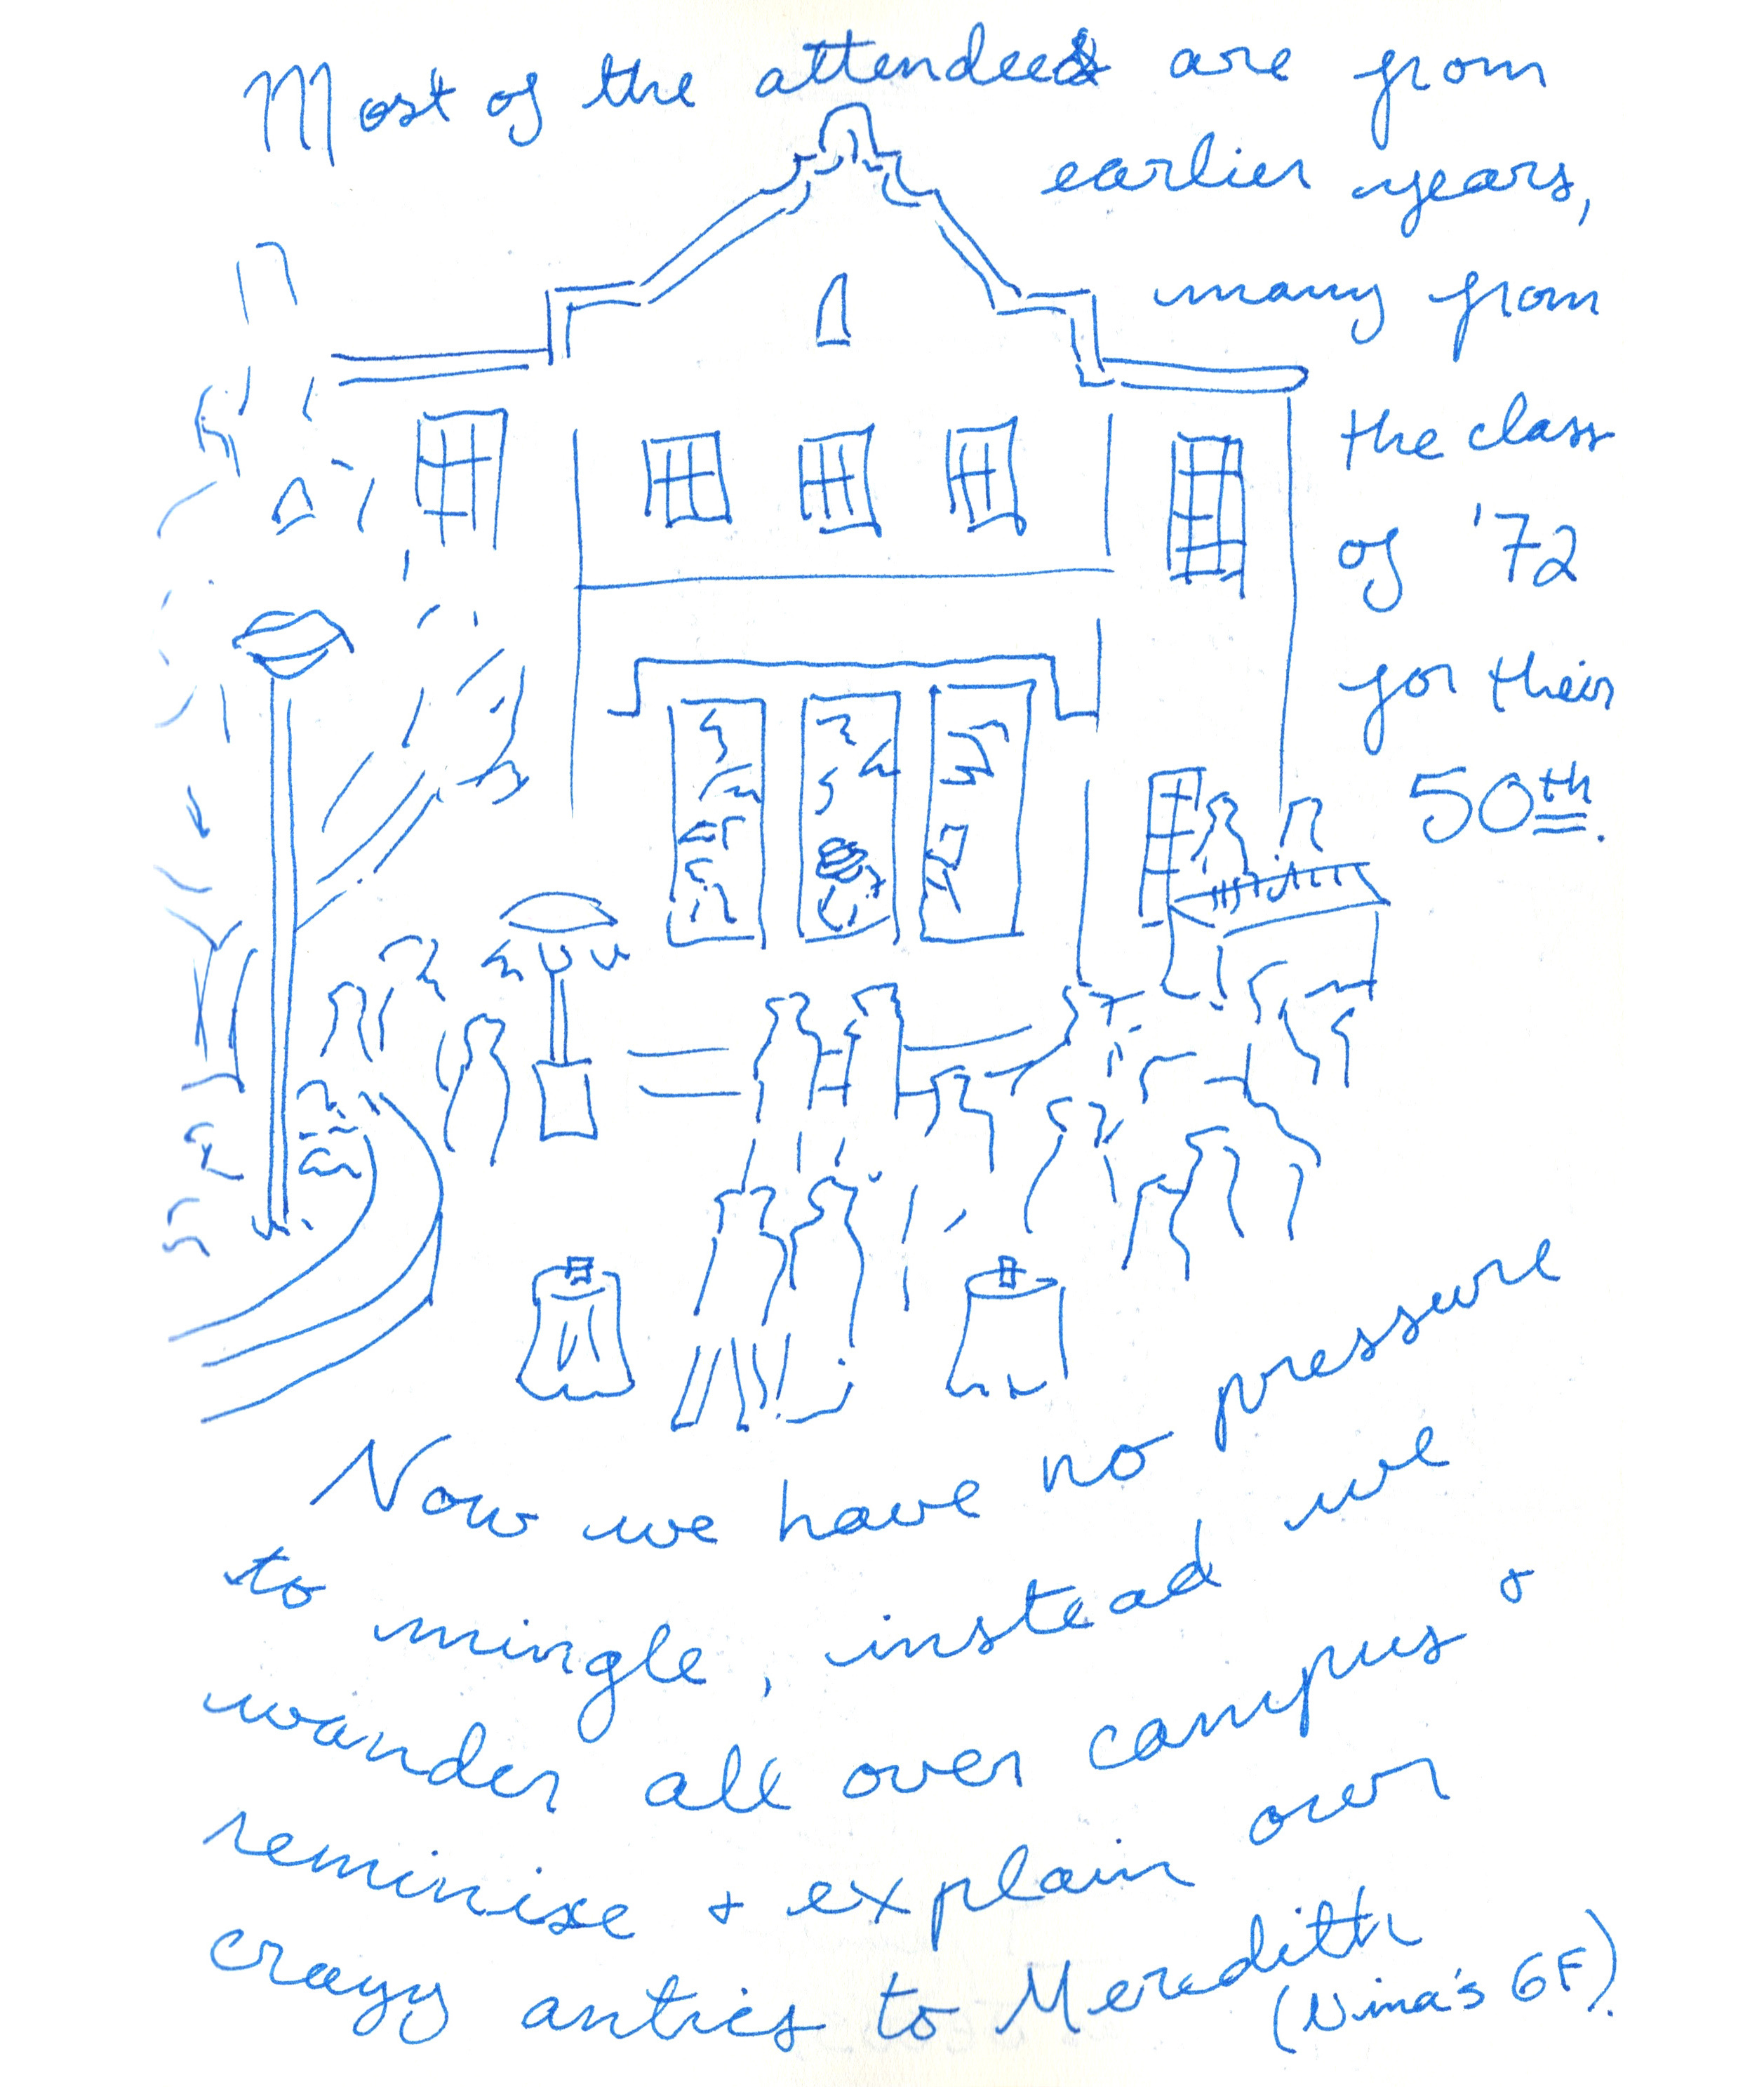 Most of the attendees are from
earlier years,
many from
the class
of '72
for their
50th.
Now we have no pressure
to mingle, instead we
wander all over campus &
reminisce & explain our
crazy antics to Meredith
(Nina's GF).